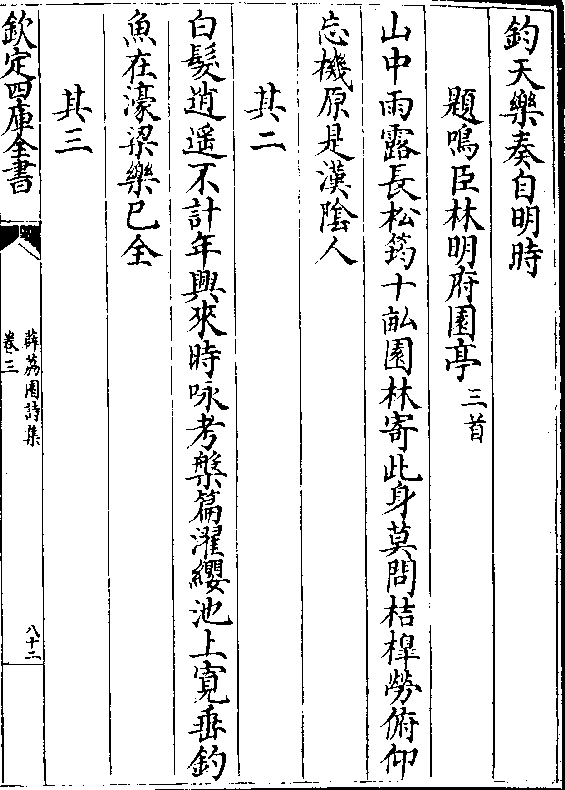 鈞天樂奏自明時
題鳴臣林明府園亭 三首
山中雨露長松筠十畝園林寄此身莫問桔槔勞俯仰
忘機原是漢陰人
其二
白髮逍遥不計年興來時咏考槃篇濯纓池上寛垂釣
魚在濠梁樂已全
其三
欽定四庫全書
薜荔園詩集
卷三
八十二